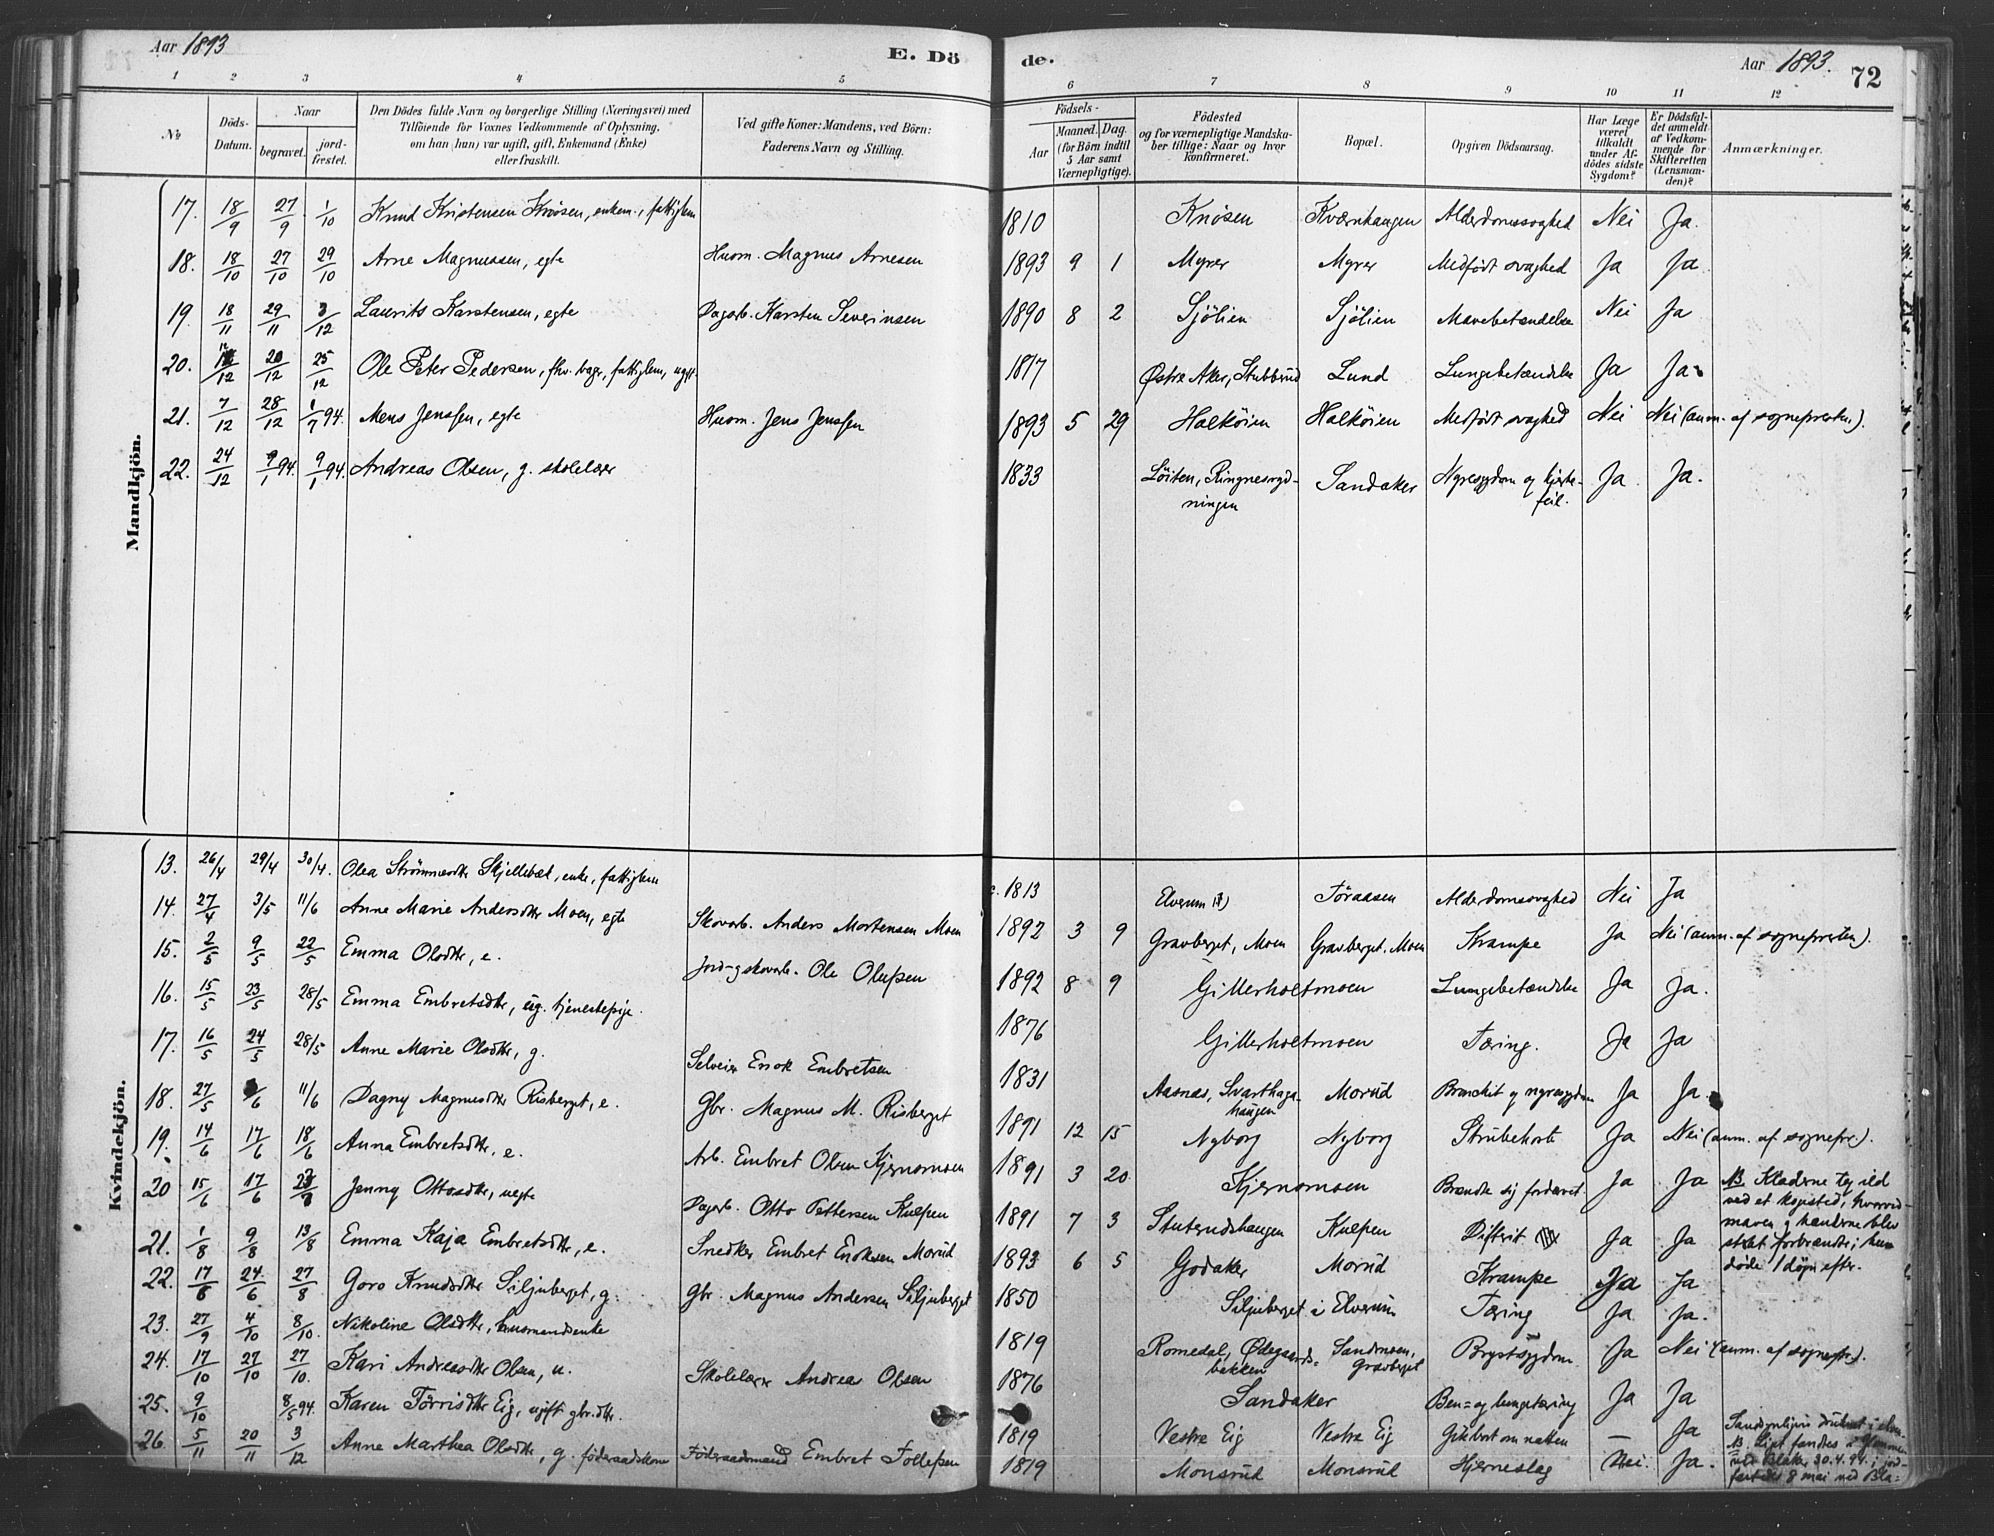 Aar 1893
E. Dö
de.
Aar 1893.
72
1 2 3 4 5 6 7 8 9 10 11 12
No
Döds-Datum.
Naar
begravet.
jord-fæstet.
Den Dödes fulde Navn og borgerlige Stilling (Næringsvei) med
Tilföiende for Voxnes Vedkommende af Oplysning,
om han (hun) var ugift, gift, Enkemand (Enke)
eller fraskilt.
Ved gifte Koner: Mandens, ved Börn:
Faderens Navn og Stilling.
Födsels-
Aar
Maaned. Dag.
(for Börn indtil
5 Aar samt
Værnepligtige).
Födested
og for værnepligtige Mandska-
ber tillige: Naar og hvor
konfirmeret.
Bopæl.
Opgiven Dödsaarsag.
Har Læge
været
tilkaldt
under Af-
dödes sidste
Sygdom?
Er Dödsfal-
det anmeldt
af Vedkom-
mende for
Skifteretten
(Lensman-
den)?
Anmærkninger.
Mandkjön.
17. 18/9 27/9 1/10 Knud Kristensen Knösen, enkem., fattiglem 1810 Knösen Kværnhaugen Alderdomssvaghed Nei Ja.
18. 18/10 27/10 29/10 Arne Magnussen, egte Husm. Magnus Arnesen 1893 9 1 Myrer Myrer Medfödt svaghed Ja Ja
19. 18/11 29/11 3/12 Laurits Karstensen, egte Dagarb. Karsten Severinsen 1890 8 2 Sjölien Sjölien Mavebetændelse Nei Ja
20. /12 20/12 25/12 Ole Peter Pedersen, fhv. bager, fattiglem, ugift. 1817 Østre Aker, Stubberud Lund Lungebetændelse Ja Ja
21. 7/12 28/12 1/7 94. Mens Jenssen, egte Husm. Jens Jenssen 1893 5 29 Halköien Halköien Medfödt svaghed Nei Nei (anm. af sognepresten).
22. 24/12 9/1 94. 9/1 94. Andreas Olsen, g. skolelærer 1833 Löiten, Ringnesryd-
ningen Sandaker Nyresygdom og hjerte-
feil. Ja Ja.
Kvindekjön.
13. 26/4 29/4 30/4. Olea Strömnesdtr Skjellebæk, enke, fattiglem c. 1813 Elverum (?) Töraasen Alderdomssvaghed Nei Ja
14. 27/4 3/5 11/6 Anne Marie Andersdtr Moen, egte Skovarb. Anders Mortensen Moen 1892 3 9 Gravberget, Moen Gravberget, Moen Krampe Ja Nei (anm. af sognepresten).
15. 2/5 9/5 22/5 Emma Olsdtr, e. Jord- og skovarb. Ole Olufsen 1892 8 9 Gillerholtmoen Lungebetændelse Ja Ja.
16. 15/5 23/5 28/5 Emma Embretsdtr, ug. tjenestepige. 1876 Gillerholtmoen Tæring. Ja Ja
17. 16/5 24/5 28/5 Anne Marie Olsdtr, g. Selveier Enok Embretsen 1831 Aasnæs, Svarthaga-
haugen Morud Bronchit og nyresygdom Ja Ja.
18. 27/5 /6 11/6 Dagny Magnusdtr Risberget, e. Gbr. Magnus M. Risberget 1891 12 15 Nyborg Nyborg Strubehoste Ja Nei (anm. af sognepr.).
19. 14/6 17/6 18/6 Anna Embretsdtr, e. Arb. Embret Olsen Kjernsmoen 1891 3 20 Kjernsmoen Brændte sig fordærvet. Ja Ja NB. Klæderne tog ild
ved et kogested, hvorved
maven og hænderne blev
stærkt forbrændte; hun
døde 1 døgn efter.
20 15/6 17/6 23/ Jenny Ottosdtr, uegte Dagarb. Otto Pettersen Kulpen 1891 7 3 Stuterudshaugen Kulpen Difterit Ja Ja
21. 1/8 9/8 13/8 Emma Kaja Embretsdtr, e. Snedker Embret Enoksen Morud 1893 6 5 Godaker Morud Krampe Ja Ja
22. 17/6 24/6 27/8 Goro Knudsdtr Siljuberget, g. Gbr. Magnus Andersen Siljuberget 1850 Siljuberget i Elverum Tæring Ja Ja.
23. 27/9 4/10 8/10. Nikoline Olsdtr, husmandsenke 1819 Romedal, Ødegaards-
bakken Sandmoen,
Gravberget Brystsygdom Ja Nei (anm. af sognepr.).
24. 17/10 27/10 27/10. Kari Andreasdtr Olsen, u. Skolelærer Andreas Olsen 1876 Sandaker Ben- og lungetæring Ja Ja
25. 9/10 8/5 94. Karen Törrisdtr Eig, ugift gbr.dtr. 1819 Vestre Eig Vestre Eig Gik bort om natten — Ja Sandsynligvis druknet i elven.
NB. Liget fandtes i Glommen
ved Blaker 30.4.94. i jord-
fæstet 8 mai ved Bla=
26. 5/11 20/11 3/12 Anne Marthea Olsdtr, g. föderaadskone Föderaadsmand Embret Tollefsen 1819 Monsrud Monsrud Hjerneslag Nei. Ja.